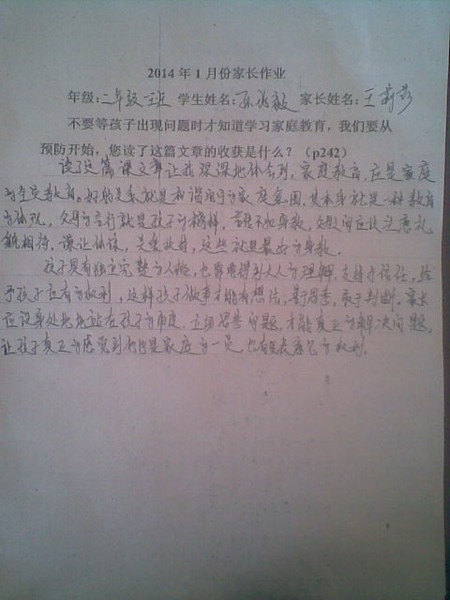 2014年1月份家长作业
年级：二年级一班 学生姓名：孙 毅 家长姓名：王莉莎
不要等孩子出现问题时才知道学习家庭教育，我们要从
预防开始，您读了这篇文章的收获是什么？（p242）
读了这篇课文章让我深深地体会到，家庭教育，应是家庭
教育。好的关系就是和谐的家庭氛围，其本身就是一种教育
的体现，父母的言行就是孩子的榜样，言传不如身教，父母间应该注意礼
貌相待，谦让体谅，关爱扶持，这些就是最好的身教。
孩子具有独立完整的人格，也要取得别人的理解，支持与信任，给
予孩子应有的权利，这样孩子做事才能有想法，善思考，敢于判断。家长
应设身处地地站在孩子的角度，正确思考问题，才能真正的解决问题，
让孩子真正的感觉到他们是家庭的一员，也有发表意见的权利。